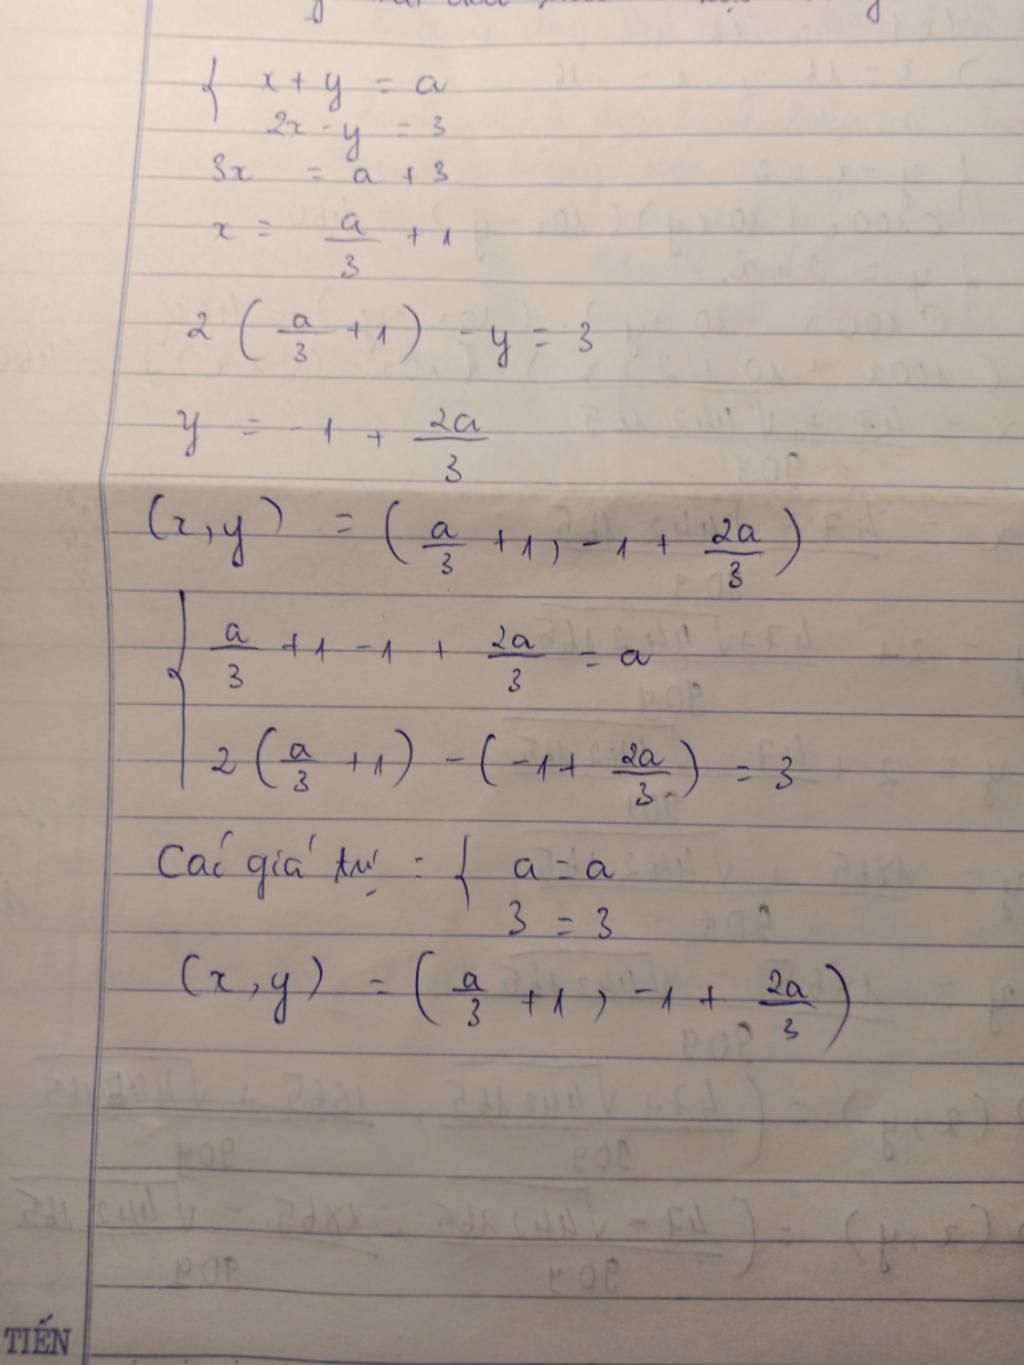 { x + y = a
2x - y = 3
3x = a + 3
x = a/3 + 1
2 ( a/3 + 1 ) - y = 3
y = -1 + 2a/3
(x, y) = ( a/3 + 1, -1 + 2a/3 )
{ a/3 + 1 - 1 + 2a/3 = a
2 ( a/3 + 1 ) - ( -1 + 2a/3 ) = 3
Các giá trị : { a = a
3 = 3
(x, y) = ( a/3 + 1, -1 + 2a/3 )
TIẾN